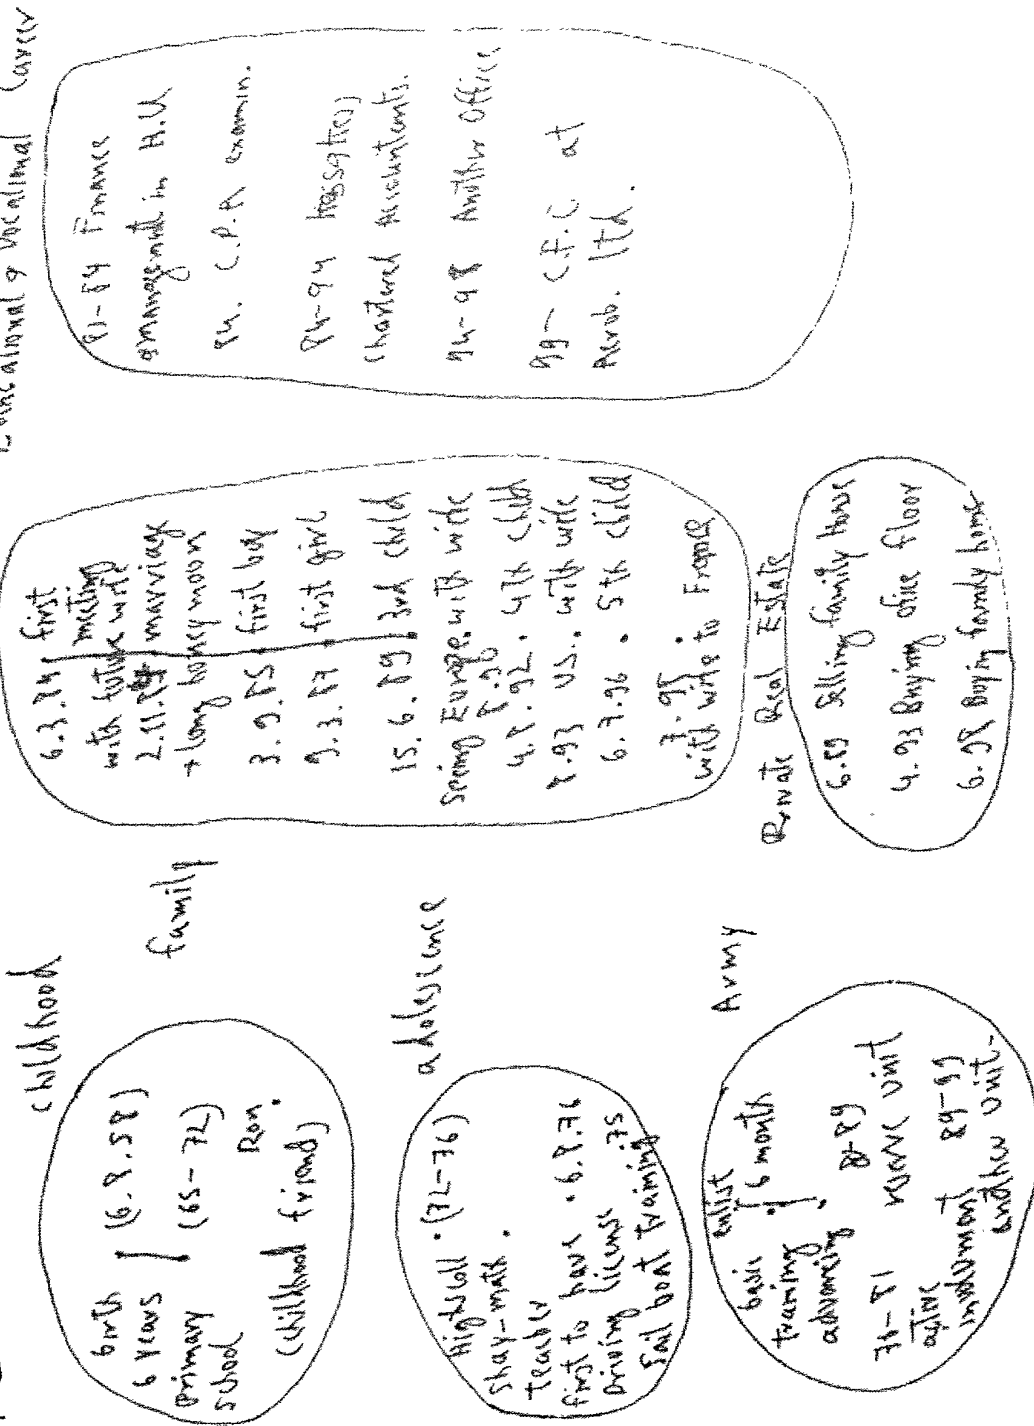 childhood
birth (6.8.58)
6 years
primary (65-72)
school
Ron.
(childhood friend)
adolesience
Highscoll . (72-76)
Shay-math .
teacher
first to have . 6.8.76
Driving license
.75
Sail boat training
Army
enlist
basic
6 month
training
advancing
76-81
active
reserve unit
89-99
another unit-
family
6.3.84 first
meeting
with future wife
marriage
+ long honey moon
3.9.85 first boy
9.3.87 first girl
15.6.89 3rd child
Europe with wife
8.90
4.8.92. 4th child
8.93 US.. with wife
6.7.96 . 5th child
7.98
with wife to France
Private Real Estate
6.89 Selling family House
4.93 Buying ofice floor
6.98 Buying family home
& Vocational Career
81-84 Finance
management in H.U
84. C.P.A examin.
84-94
Chartered Accountents.
94-98 Another Office
99- C.F.C at
Aerob. ltd.